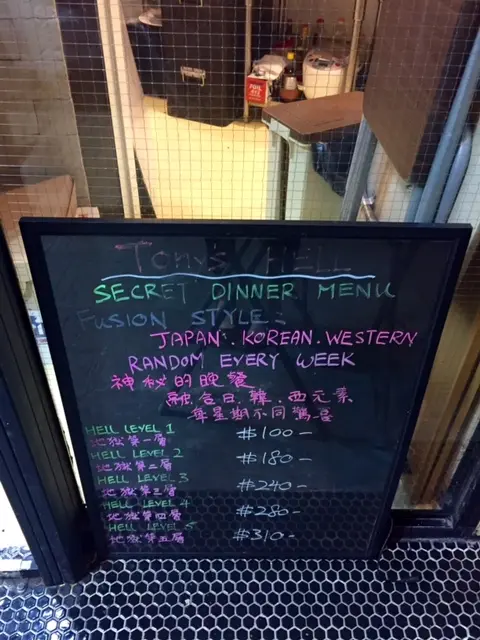 Tom's HELL
SECRET DINNER MENU
FUSION STYLE:
JAPAN. KOREAN. WESTERN
RANDOM EVERY WEEK
神秘的晚餐
融合日.韓.西元素
每星期不同驚喜
HELL LEVEL 1
地獄第一層 $100-
HELL LEVEL 2
地獄第二層 $180-
HELL LEVEL 3
地獄第三層 $240-
HELL LEVEL 4
地獄第四層 $280-
HELL LEVEL 5
地獄第五層 $310-